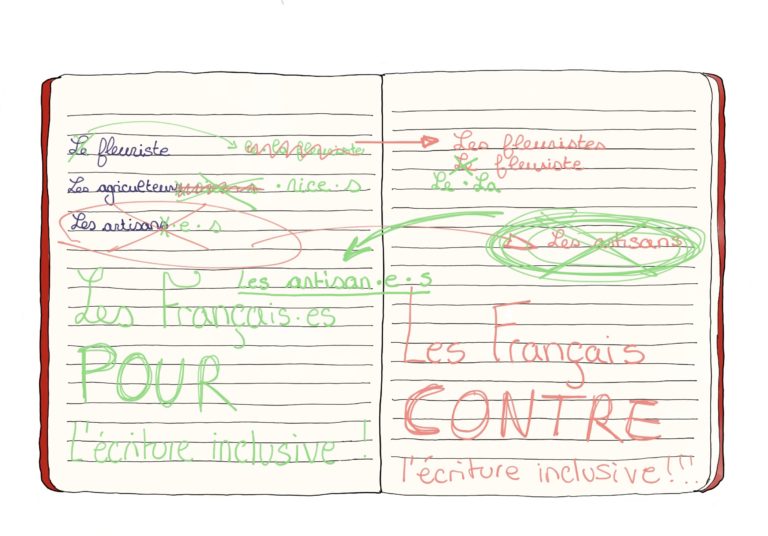 Le fleuriste
Les agriculteur ·rice·s
Les artisans ·e·s
Les artisan·e·s
Les Français·es
POUR
L'écriture inclusive !
Les fleuristes
Le fleuriste
Le·La
Les artisans
Les Français
CONTRE
l'écriture inclusive!!!